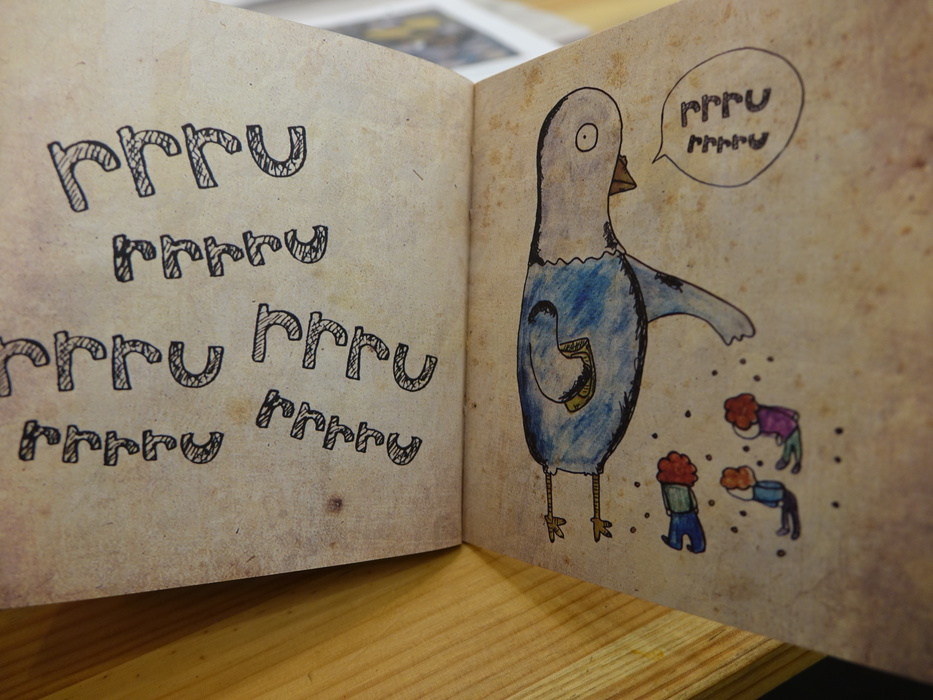 rrru
rrrru
rrru
rrrru
rrru
rrrru
rrru
rrrru